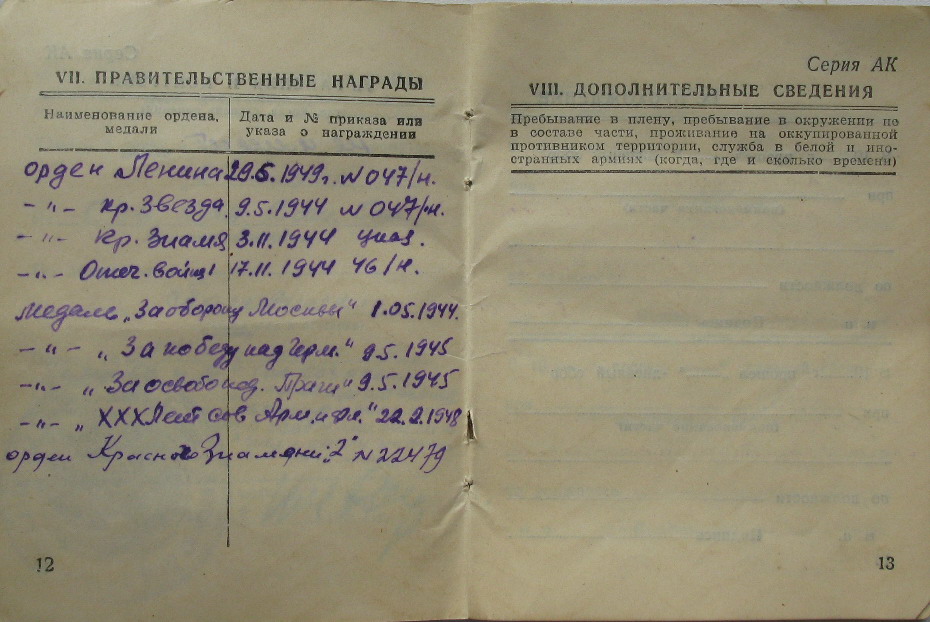 VII. ПРАВИТЕЛЬСТВЕННЫЕ НАГРАДЫ
Наименование ордена, медали
Дата и № приказа или указа о награждении
орден Ленина 29.5.1949г. N 047/н.
-"- Кр. Звезда 9.5.1944 N 047/н.
-"- Кр. Знамя 3.11.1944 указ.
-"- Отеч. войны 17.11.1944 46/н.
медаль „За оборону Москвы" 1.05.1944.
-"- „За победу над Герм." 9.5.1945
-"- „За освобожд. Праги" 9.5.1945
-"- „XXX Лет Сов Арм. и фл." 22.2.1948
орден Красного Знамени „2" N 22479
12
Серия АК
VIII. ДОПОЛНИТЕЛЬНЫЕ СВЕДЕНИЯ
Пребывание в плену, пребывание в окружении не
в составе части, проживание на оккупированной
противником территории, служба в белой и ино-
странных армиях (когда, где и сколько времени)
13